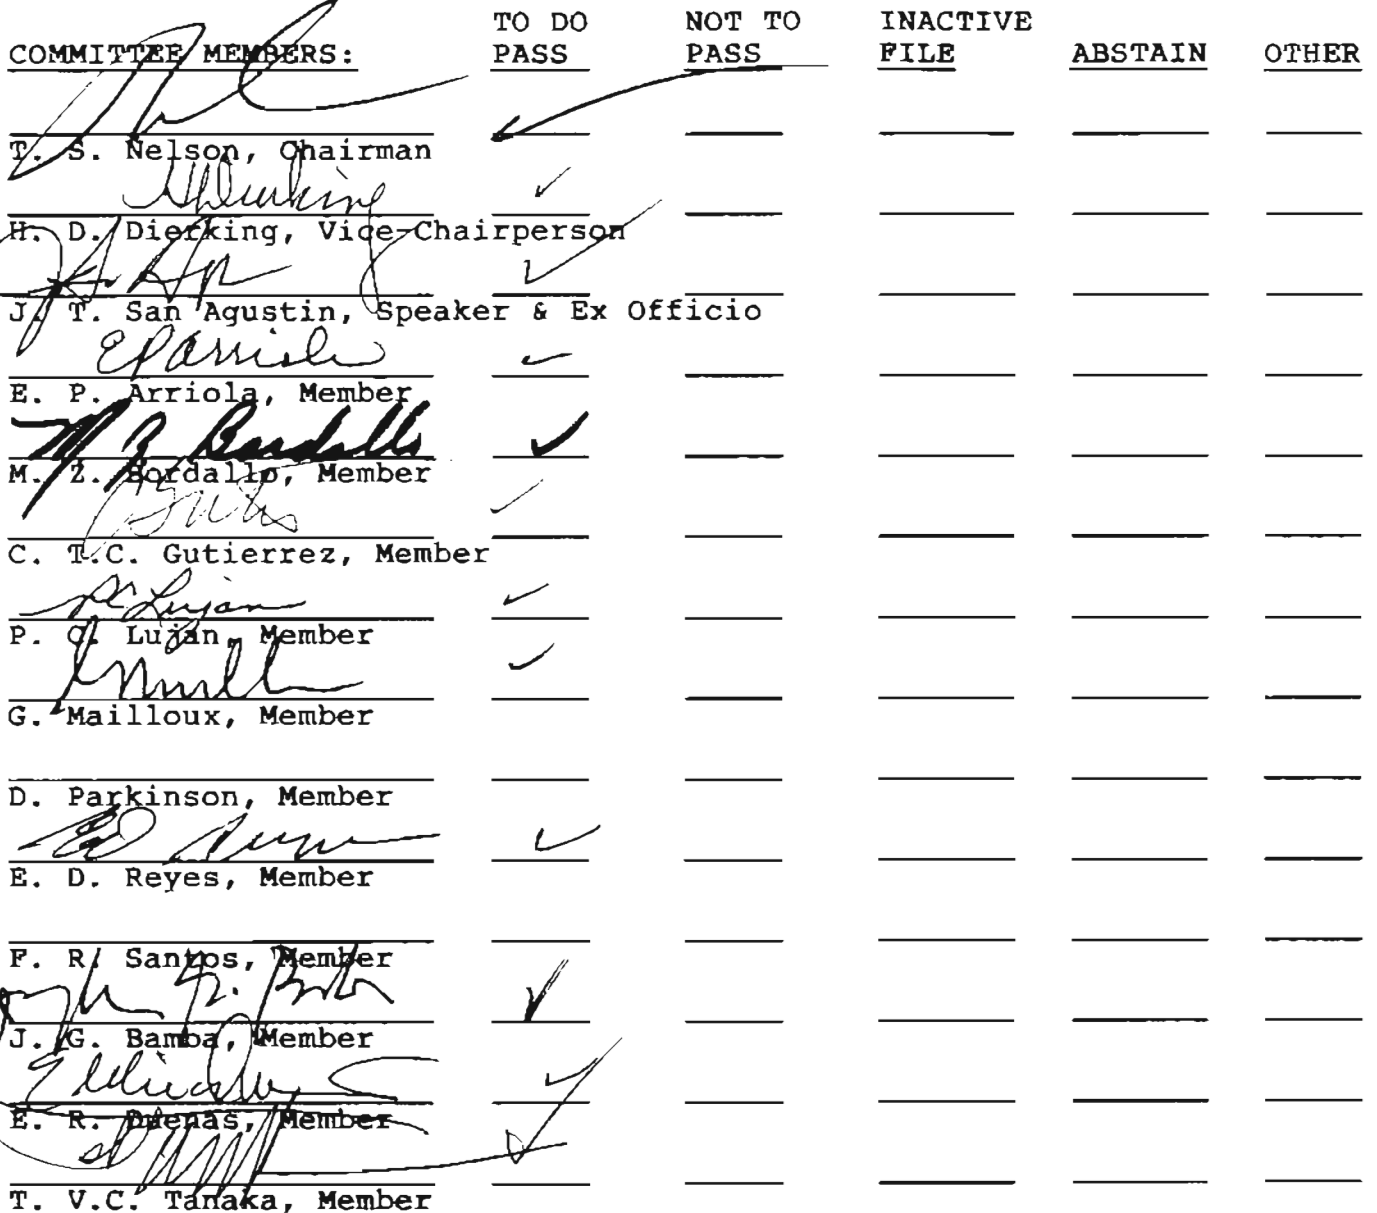 TO DO NOT TO INACTIVE
COMMITTEE MEMBERS: PASS PASS FILE ABSTAIN OTHER
T. S. Nelson, Chairman
H. D. Dierking, Vice-Chairperson
J. T. San Agustin, Speaker & Ex Officio
EPArriola
E. P. Arriola, Member
M Z Bordallo
M. Z. Bordallo, Member
C. T.C. Gutierrez, Member
PC Lujan
P. C. Lujan, Member
G. Mailloux, Member
D. Parkinson, Member
E. D. Reyes, Member
F. R. Santos, Member
J. G. Bamba, Member
E. R. Duenas, Member
T. V.C. Tanaka, Member